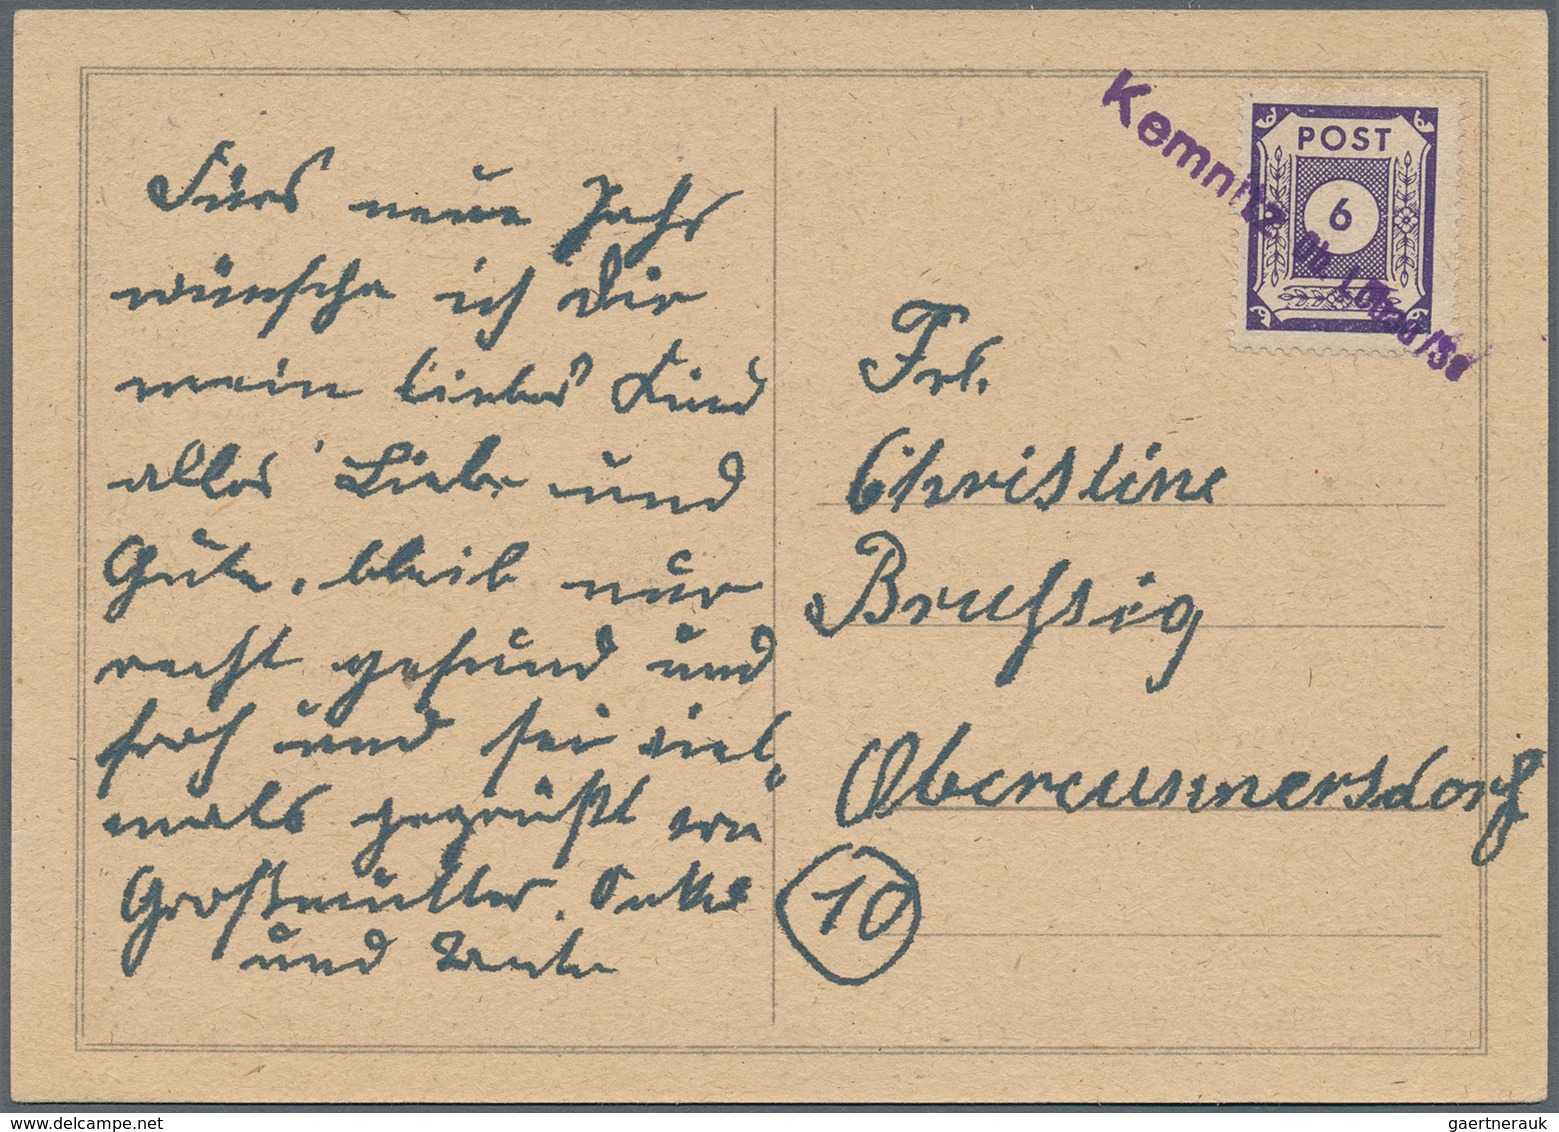 Fürs neue Jahr
wünsche ich Dir
mein liebes Kind
alles Liebe und
Gute, bleib nur
recht gesund und
froh und sei viel-
mals gegrüßt von
Großmutter, Onkel
und Tante
Kemnitz üb. Löbau/Sa
POST
6
Frl.
Christine
Brussig
Obercunnersdorf
10
gaertnerauk